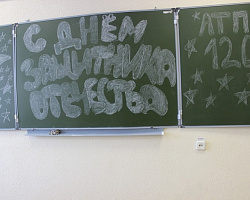 С ДНЁМ
ЗАЩИТНИКА
ОТЕЧЕСТВА
АТП